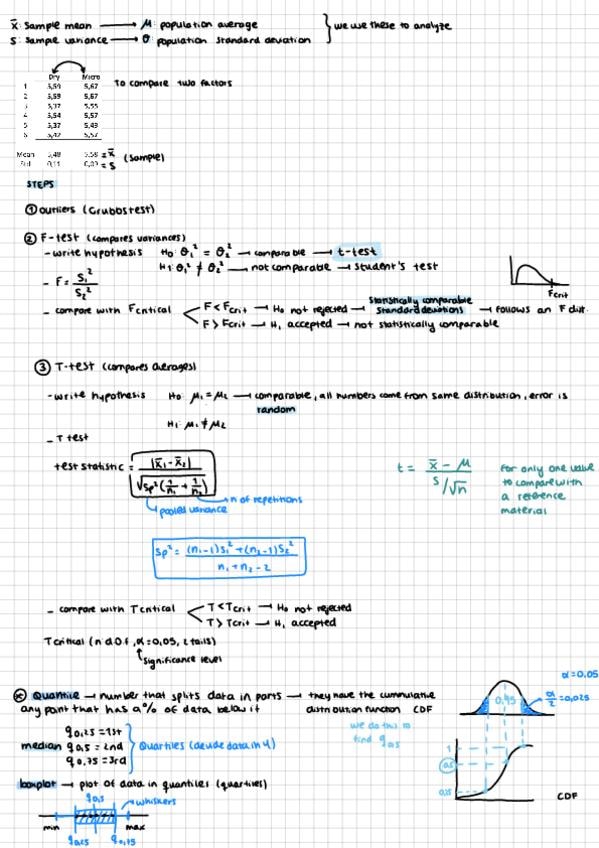 x̄: Sample mean → μ: population average } we use these to analyze
s: sample variance → θ: population standard deviation
Dry Micro To compare two factors
1 5,59 5,67
2 5,59 5,67
3 5,37 5,55
4 5,54 5,57
5 5,37 5,43
6 5,42 5,57
Mean 5,48 5.58 = x̄ (sample)
Std 0,11 = s
STEPS
① outliers (Grubbs test)
② F-test (compares variances)
- write hypothesis H0: θ₁² = θ₂² → comparable → t-test
H1: θ₁² ≠ θ₂² → not comparable → student's test
- F = s₁²/s₂²
Fcrit
- compare with Fcritical < F < Fcrit → H0 not rejected → Statistically comparable standard deviations → follows an F dist.
F > Fcrit → H₁ accepted → not statistically comparable
③ T-test (compares averages)
- write hypothesis H0: μ₁ = μ₂ → comparable, all numbers come from same distribution, error is
random
H1: μ₁ ≠ μ₂
- T test
test statistic = |x̄₁ - x̄₂| / √(sp² (1/n₁ + 1/n₂))
n of repetitions
pooled variance
t = (x̄ - μ) / (s/√n)
for only one value
to compare with
a reference
material
sp² = ((n₁-1)s₁² + (n₂-1)s₂²) / (n₁ + n₂ - 2)
- compare with Tcritical < T < Tcrit → H0 not rejected
T > Tcrit → H₁ accepted
Tcritical (n d.o.f, α = 0,05, 2 tails)
significance level
α = 0.05
Quantile → number that splits data in parts → they have the cummulative
any point that has a % of data below it distribution function CDF
0,95
α/2 = 0,025
we do this to
find q0,5
q0,25 = 1st
median q0,5 = 2nd } Quartiles (devide data in 4)
q0,75 = 3rd
1
0,5
boxplot → plot of data in quantiles (quartiles)
CDF
q0,5 whiskers
min max
q0,25 q0,75